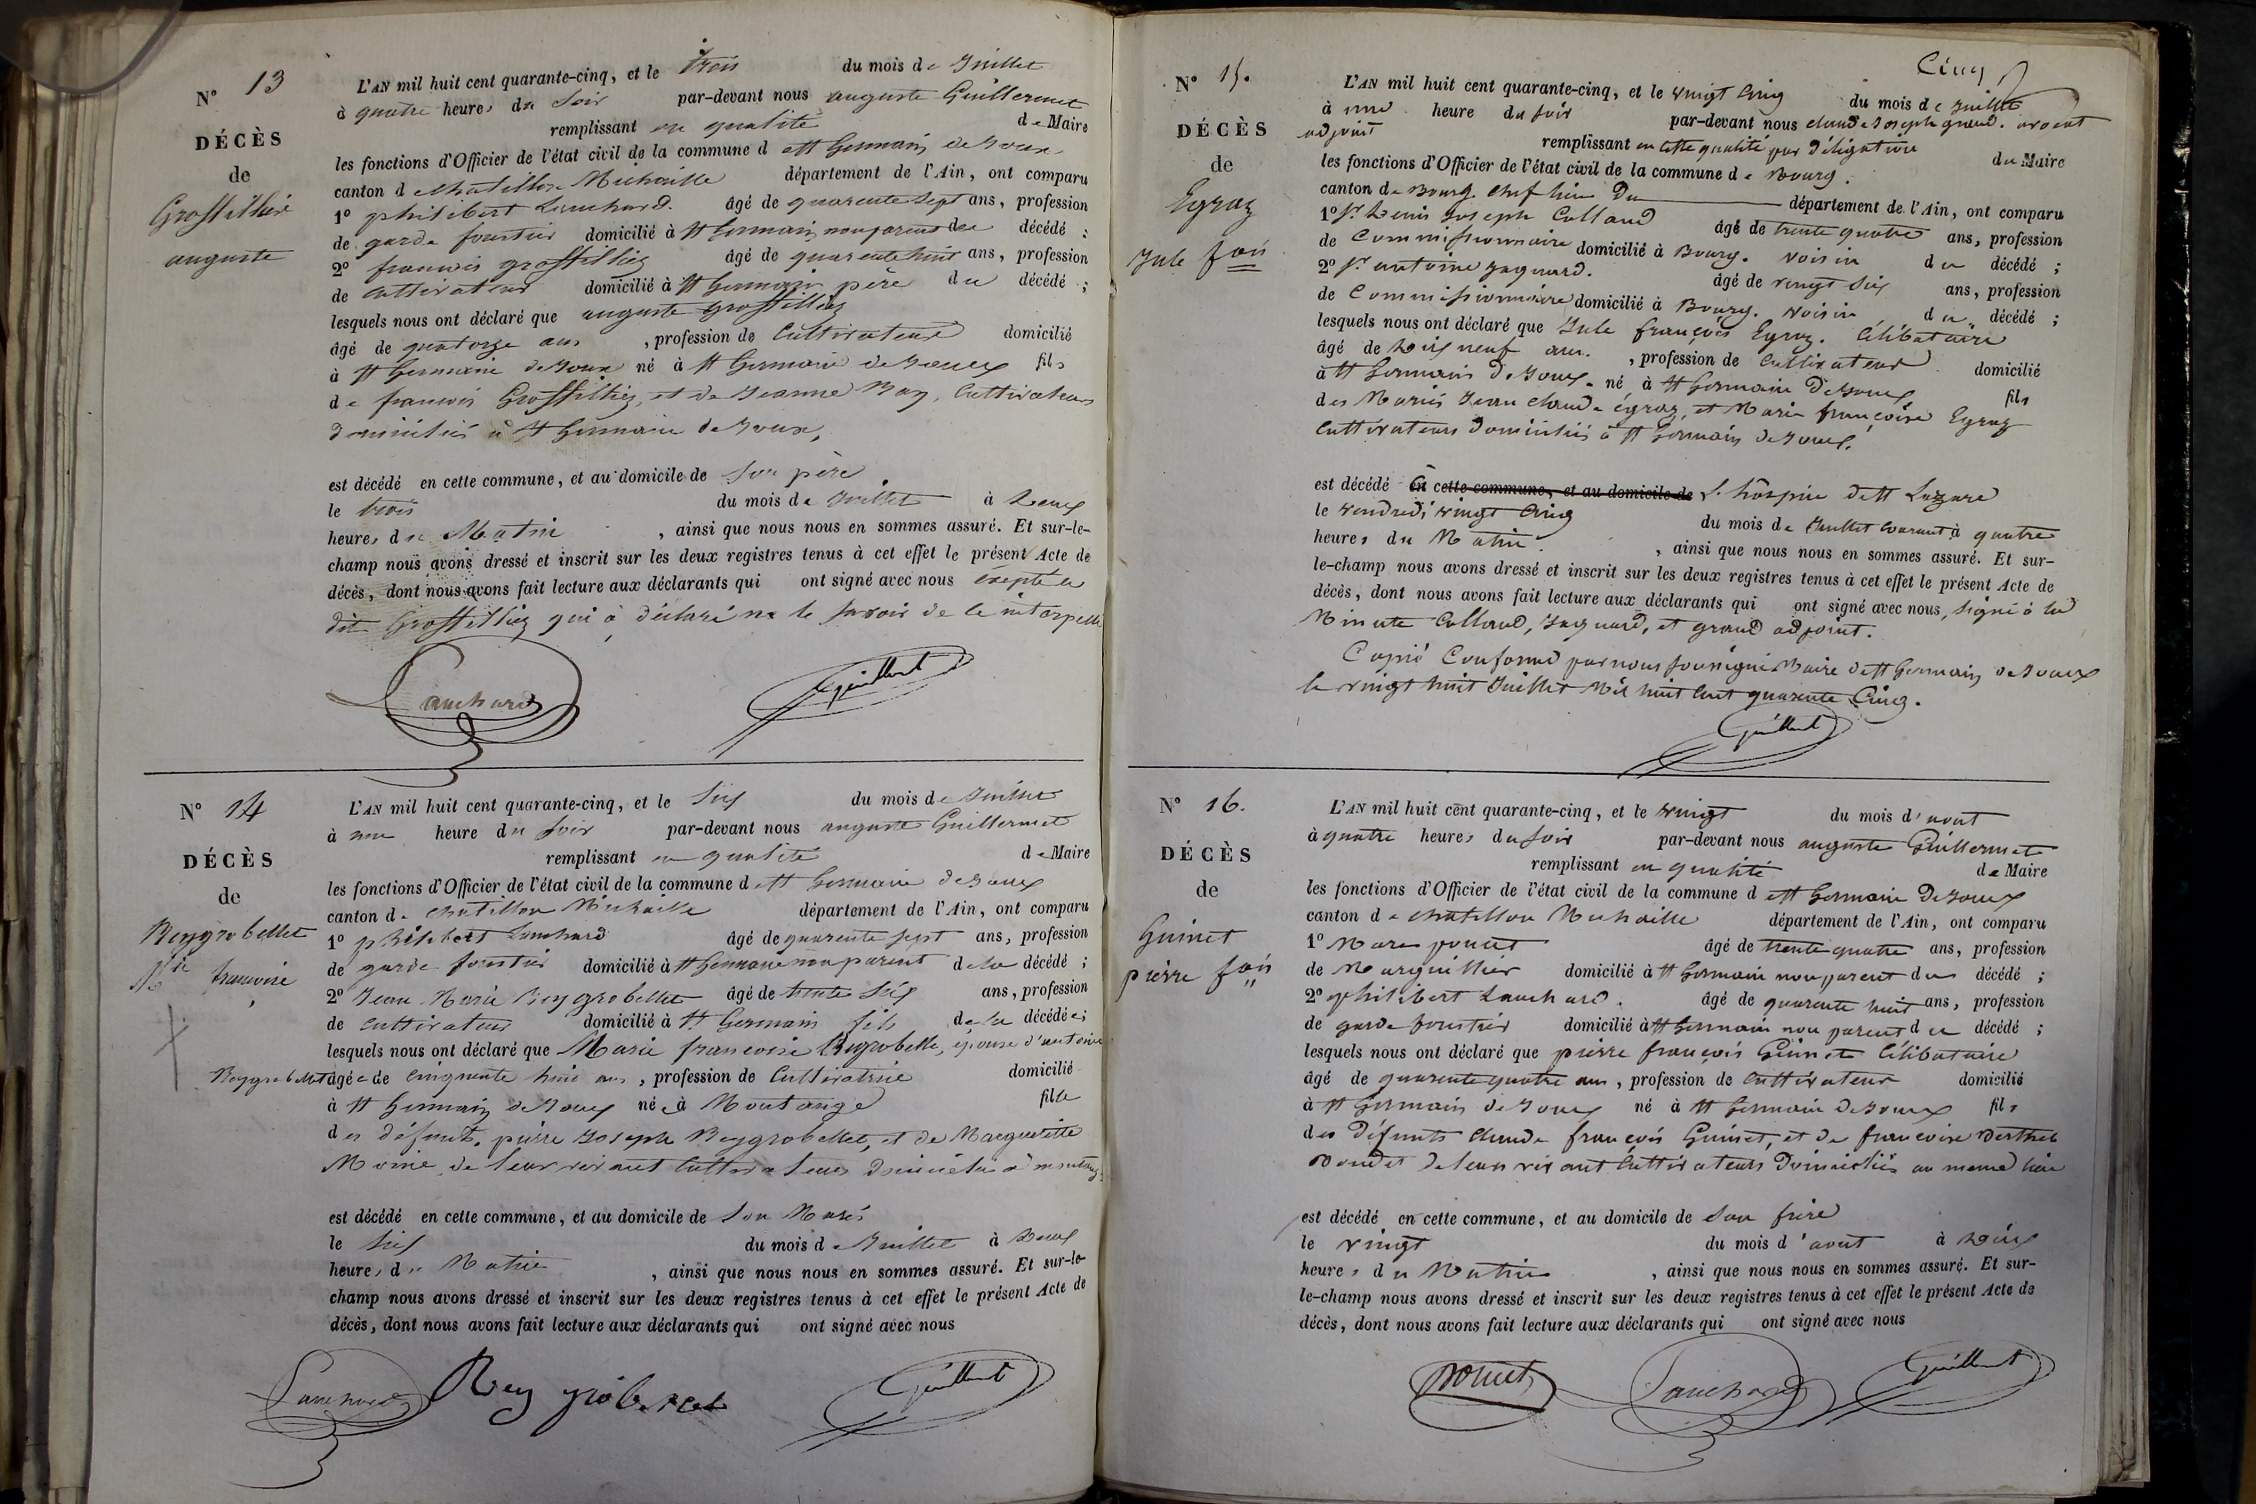 N° 13
DÉCÈS
de
Grossilliez
auguste
L'AN mil huit cent quarante-cinq, et le trois du mois de Juillet
à quatre heures du Soir par-devant nous auguste Guillermet
remplissant en qualité de Maire
les fonctions d'Officier de l'état civil de la commune de St Germain de Joux
canton de Chatillon Michaille département de l'Ain, ont comparu
1° philibert Lanchard âgé de quarente Sept ans, profession
de garde forestier domicilié à St Germain, non parent du décédé ;
2° francois grossilliez âgé de quarente huit ans, profession
de Cultivateur domicilié à St Germain père du décédé ;
lesquels nous ont déclaré que auguste Grossilliez
âgé de quatorze ans, profession de Cultivateur domicilié
à St Germain de Joux né à St Germain de Joux fils
de francois Grossilliez, et de Jeanne Ray, Cultivateurs
domiciliés à St Germain de Joux,
est décédé en cette commune, et au domicile de Son père
le trois du mois de Juillet à Deux
heures du Matin, ainsi que nous nous en sommes assuré. Et sur-le-
champ nous avons dressé et inscrit sur les deux registres tenus à cet effet le présent Acte de
décès, dont nous avons fait lecture aux déclarants qui ont signé avec nous éxepté le
dit Grossilliez qui à déclaré ne le savoir de ce interpellé
Lanchard Guillermet
N° 14
DÉCÈS
de
Reygrobellet
Mie francoise
L'AN mil huit cent quarante-cinq, et le Six du mois de Juillet
à une heure du Soir par-devant nous auguste Guillermet
remplissant en qualité de Maire
les fonctions d'Officier de l'état civil de la commune de St Germain de Joux
canton de Chatillon Michaille département de l'Ain, ont comparu
1° philibert Lanchard âgé de quarente sept ans, profession
de garde forestier domicilié à St Germain non parent de la décédé ;
2° Jean Marie Reygrobellet âgé de trente Six ans, profession
de Cultivateur domicilié à St Germain fils de la décédée ;
lesquels nous ont déclaré que Marie francoise Reygrobelle, épouse d'antoine
Reygrobellet âgée de Cinquente huit ans, profession de Cultivatrice domicilié
à St Germain de Joux née à Montange fille
des défunts pierre Joseph Reygrobellet, et de Margueritte
Moine de leur vivant Cultivateurs domiciliés à montange
est décédé en cette commune, et au domicile de Son Marié
le Six du mois de Juillet à Deux
heures du Matin, ainsi que nous nous en sommes assuré. Et sur-le-
champ nous avons dressé et inscrit sur les deux registres tenus à cet effet le présent Acte de
décès, dont nous avons fait lecture aux déclarants qui ont signé avec nous
Lanchard Reygrobellet Guillermet
Cinq
N° 15.
DÉCÈS
de
Egraz
Jule fois
L'AN mil huit cent quarante-cinq, et le vingt Cinq du mois de Juillet
à une heure du soir par-devant nous claude Joseph graud. avocat
adjoint remplissant en cette qualité par Déligation du Maire
les fonctions d'Officier de l'état civil de la commune de Bourg.
canton de Bourg. Chef lieu Du département de l'Ain, ont comparu
1° Sr Denis Joseph Colland âgé de trente quatre ans, profession
de Commissionnaire domicilié à Bourg. Voisin du décédé ;
2° Sr antoine Jaquard. âgé de vingt Six ans, profession
de Commissionnaire domicilié à Bourg. Voisin du décédé ;
lesquels nous ont déclaré que Jule françois Egraz. Célibataire
âgé de Dix neuf ans., profession de Cultivateur domicilié
à St Germain De Joux. né à St Germain De Joux fils
des Mariés Jean Claude égraz, et Marie françoise Egraz
Cultivateurs Domiciliés à St Germain De Joux.
est décédé en cette commune, et au domicile de L'hospice de St Lazare
le vendredi vingt Cinq du mois de Juillet courant à quatre
heures du Matin., ainsi que nous nous en sommes assuré. Et sur-
le-champ nous avons dressé et inscrit sur les deux registres tenus à cet effet le présent Acte de
décès, dont nous avons fait lecture aux déclarants qui ont signé avec nous, signé à la
Minute Colland, Jaquard, et graud adjoint.
Copié Conforme par nous soussigné Maire de St Germain de Joux
le vingt huit Juillet Mil huit Cent quarente Cinq.
Guillermet
N° 16.
DÉCÈS
de
Guinet
pierre fois
L'AN mil huit cent quarante-cinq, et le vingt du mois d'aout
à quatre heures du soir par-devant nous auguste Guillermet
remplissant en qualité de Maire
les fonctions d'Officier de l'état civil de la commune de St Germain De Joux
canton de Chatillon Michaille département de l'Ain, ont comparu
1° Marc poncet âgé de trente quatre ans, profession
de Marguillier domicilié à St Germain non parent du décédé ;
2° philibert Lanchard. âgé de quarente huit ans, profession
de garde forestier domicilié à St Germain non parent du décédé ;
lesquels nous ont déclaré que pierre françois Guinet Célibataire
âgé de quarente quatre ans, profession de Cultivateur domicilié
à St Germain de Joux né à St Germain De Joux fils
des Défunts Claude françois Guinet, et de francoise Berthet
Bondet de leur vivant Cultivateurs Domiciliés au meme lieu
est décédé en cette commune, et au domicile de Son frère
le vingt du mois d'aout à Dix
heures du Matin, ainsi que nous nous en sommes assuré. Et sur-
le-champ nous avons dressé et inscrit sur les deux registres tenus à cet effet le présent Acte de
décès, dont nous avons fait lecture aux déclarants qui ont signé avec nous
poncet Lanchard Guillermet